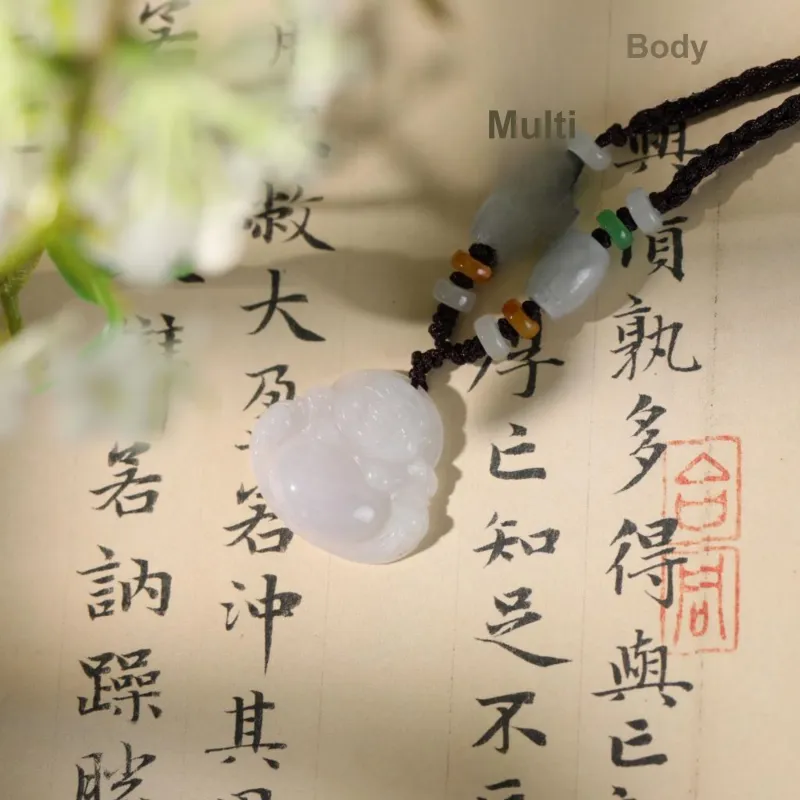 Body
Multi
與貨孰多得與亡
厚亡知足不
敝大盈若沖其
若訥躁勝